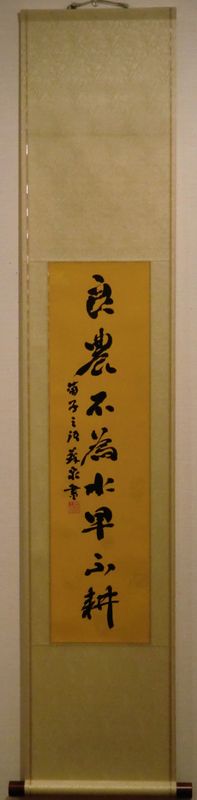 良農不為水旱不耕
荀子之語 蘇泉書